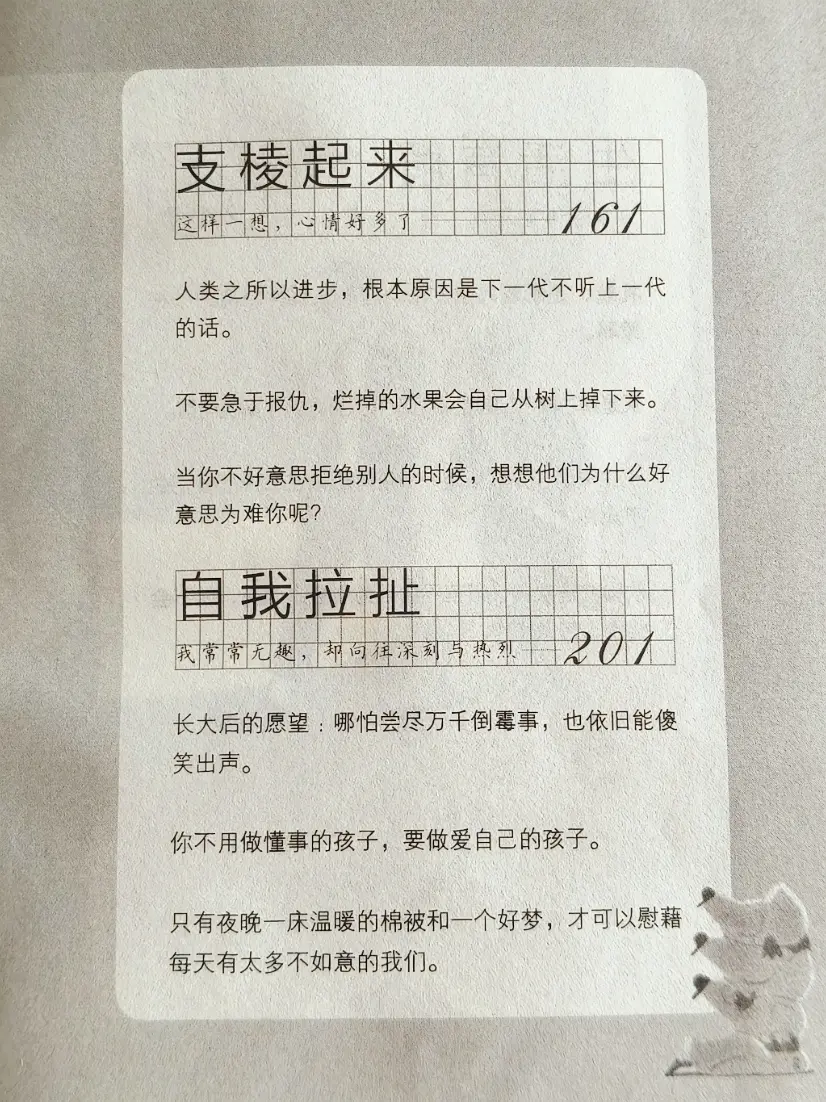 支棱起来
这样一想，心情好多了 161
人类之所以进步，根本原因是下一代不听上一代
的话。
不要急于报仇，烂掉的水果会自己从树上掉下来。
当你不好意思拒绝别人的时候，想想他们为什么好
意思为难你呢？
自我拉扯
我常常无趣，却向往深刻与热烈 201
长大后的愿望：哪怕尝尽万千倒霉事，也依旧能傻
笑出声。
你不用做懂事的孩子，要做爱自己的孩子。
只有夜晚一床温暖的棉被和一个好梦，才可以慰藉
每天有太多不如意的我们。